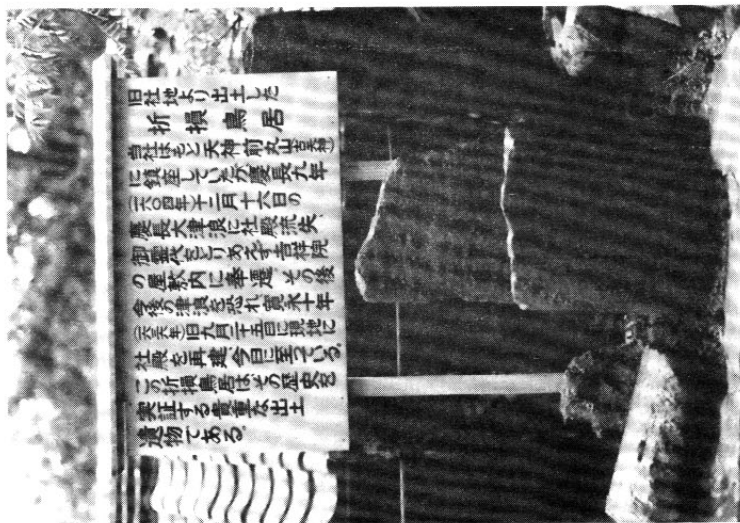 旧社地より出土した
折損鳥居
当社はもと天神前丸山(古宮祉)
に鎮座していたが慶長九年
(一六〇四年)十二月十六日の
慶長大津浪に社殿流失
御霊代をとりあえず吉祥院
の屋敷内に奉遷その後
今後の津浪を恐れ寛永十年
旧九月二十五日に現地に
社殿を再建今日に至っている。
この折損鳥居はその歴史を
実証する貴重な出土
遺物である。